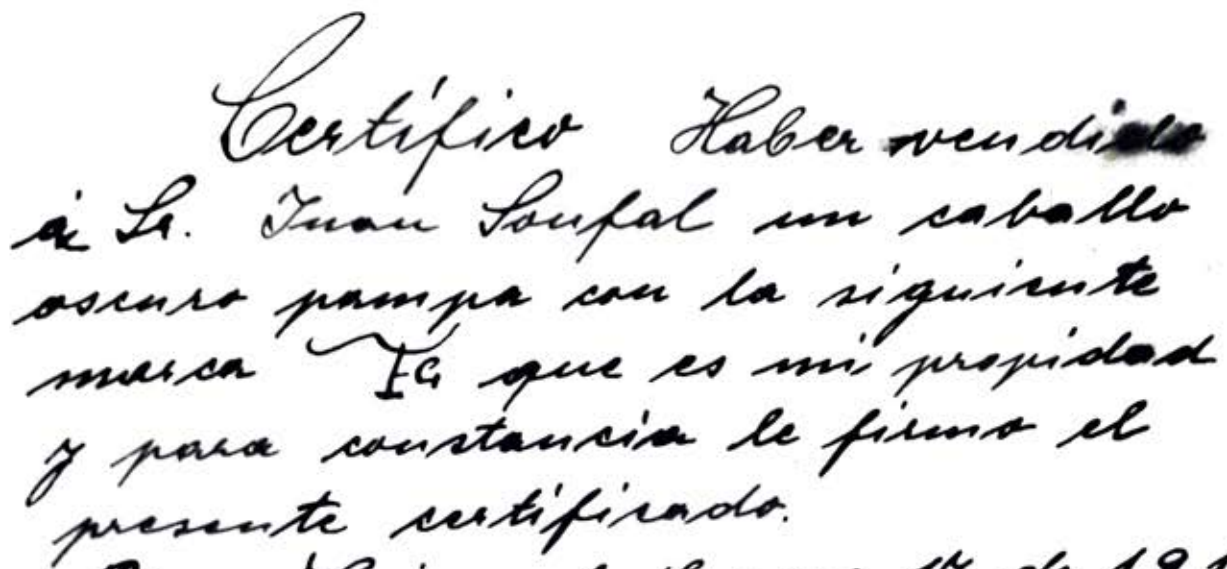 Certífico Haber vendido
á Sr. Juan Soufal un caballo
oscuro pampa con la siguiente
marca que es mi propidad
y para constancia le firmo el
presente certificado.
17 de 19